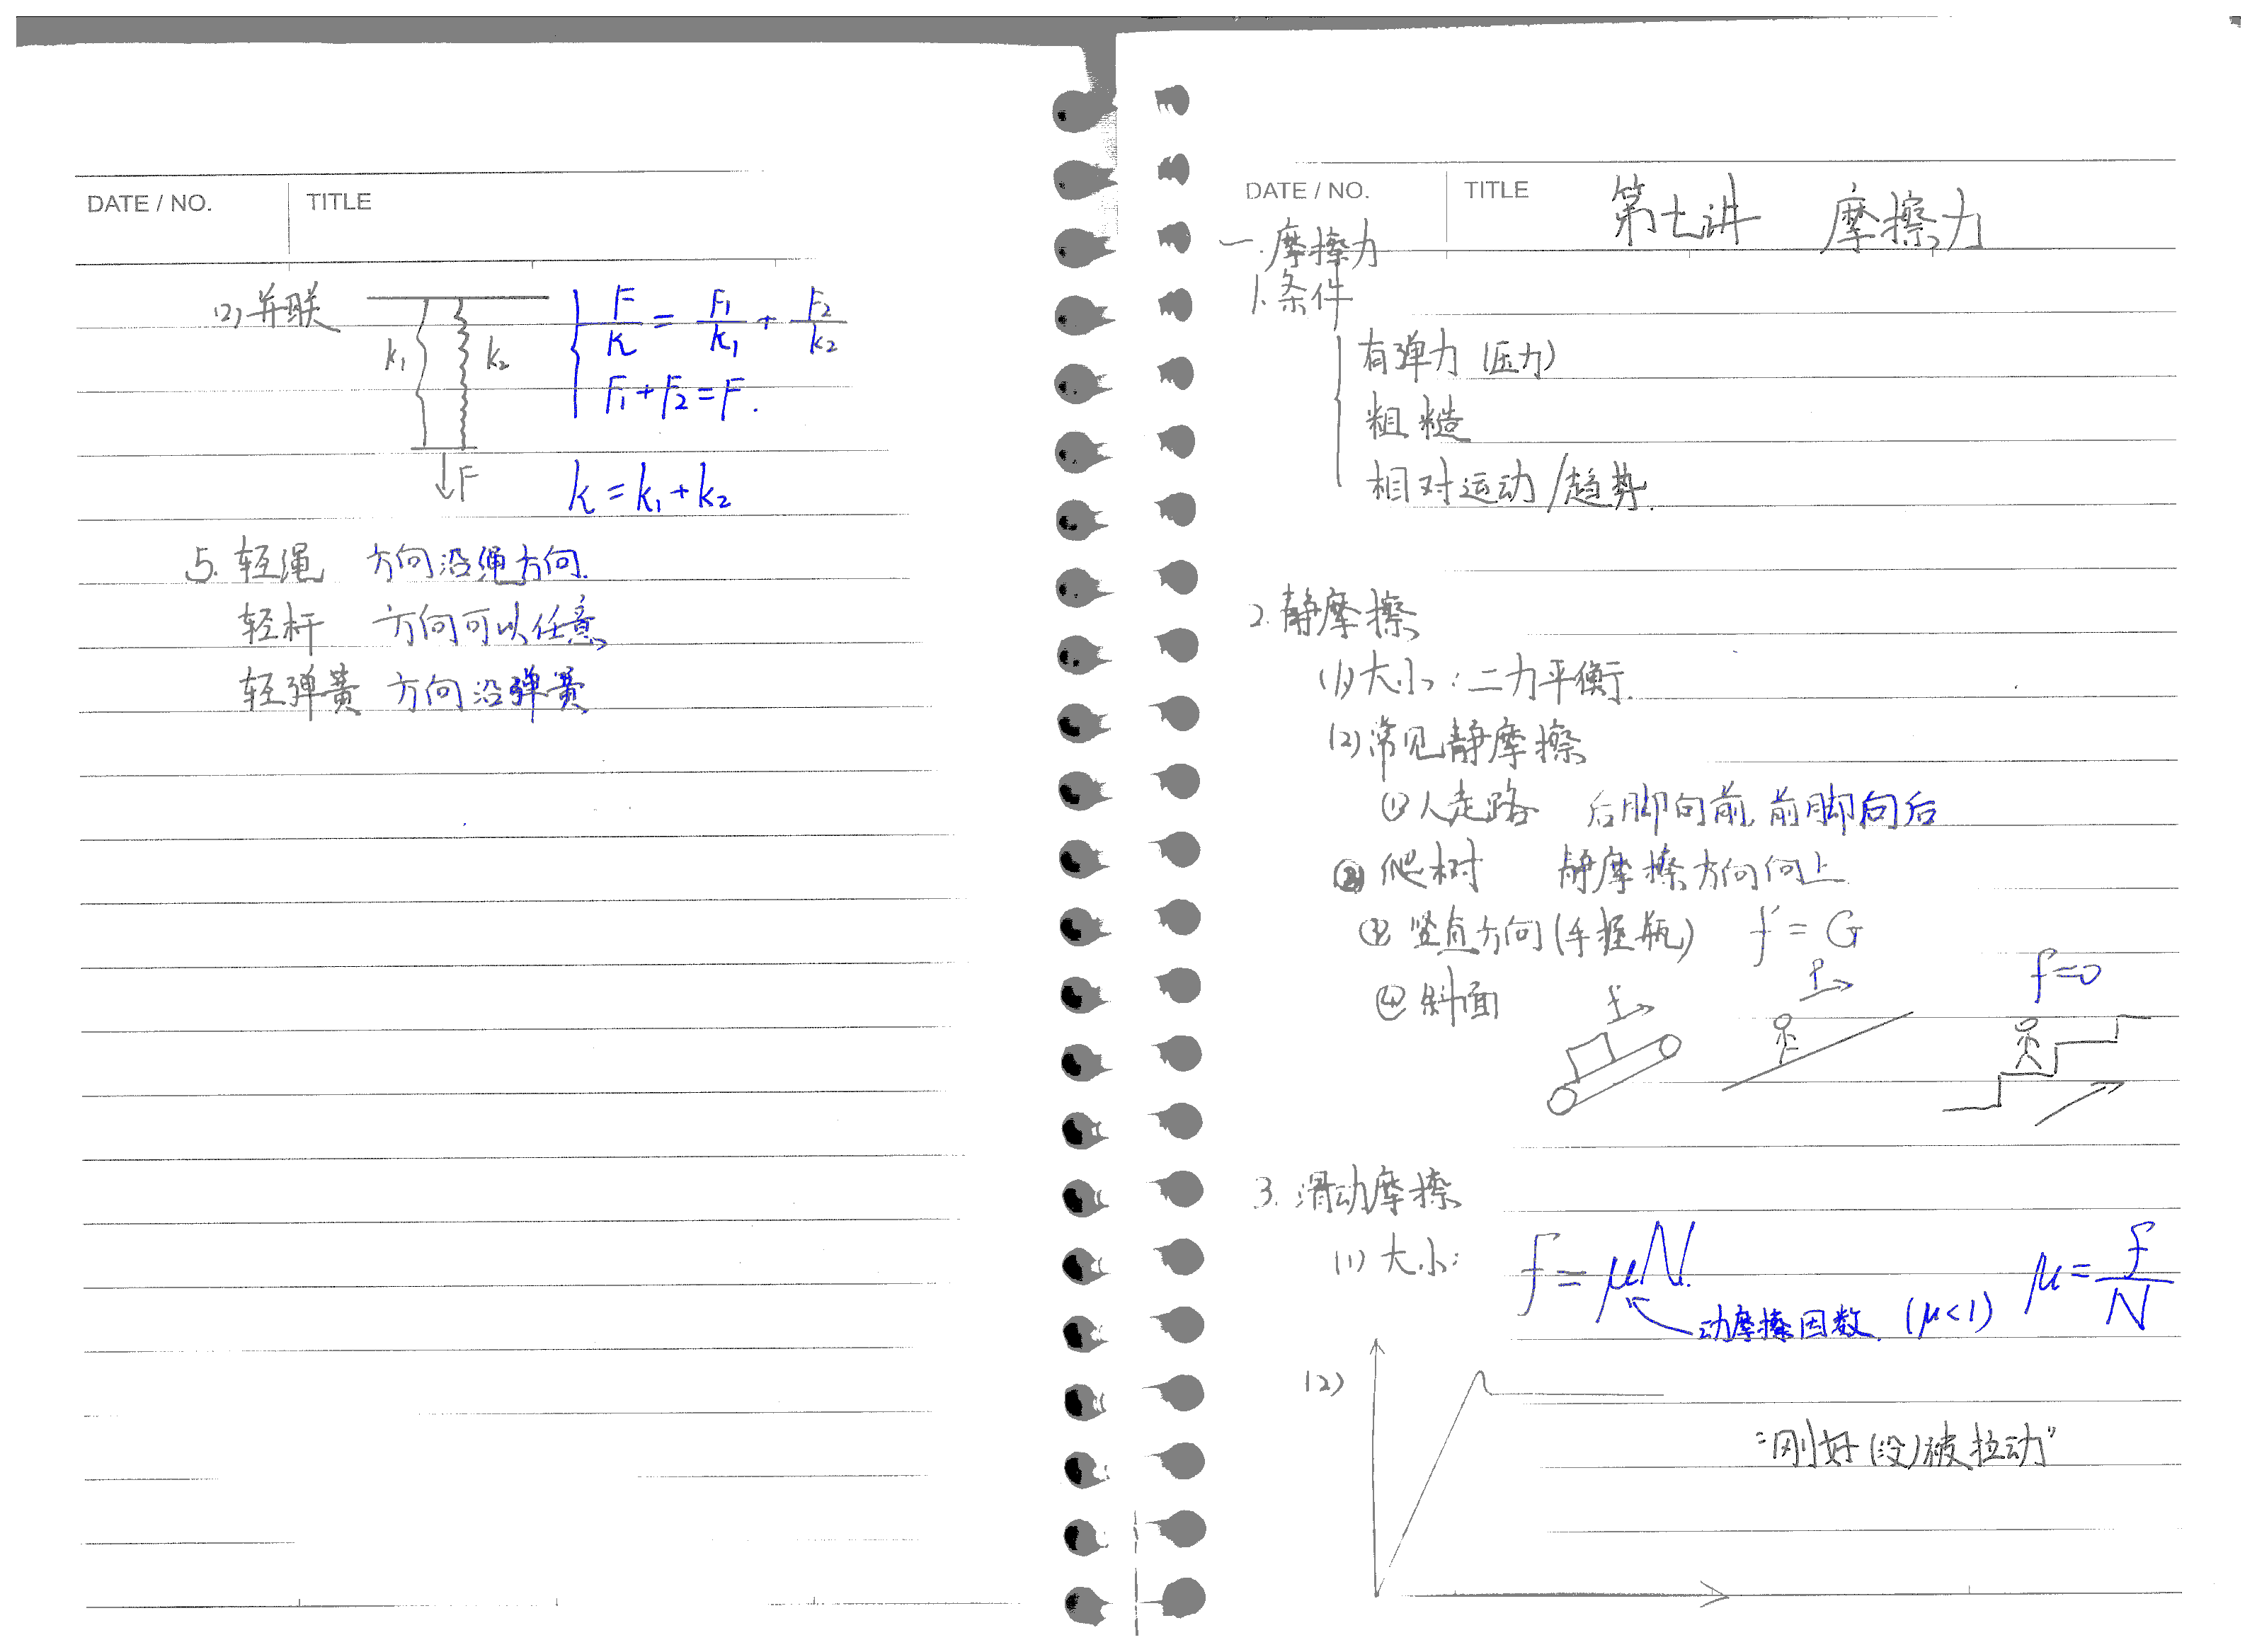 DATE / NO. TITLE
(2) 并联
k₁ k₂
F/k = F₁/k₁ + F₂/k₂
F₁ + F₂ = F.
F
k = k₁ + k₂
5. 轻绳 方向沿绳方向.
轻杆 方向可以任意
轻弹簧 方向沿弹簧
DATE / NO. TITLE 第七讲 摩擦力
一. 摩擦力
1. 条件
有弹力 (压力)
粗糙
相对运动/趋势.
2. 静摩擦
(1) 大小: 二力平衡.
(2) 常见静摩擦
① 人走路 后脚向前, 前脚向后
② 爬树 静摩擦方向向上
③ 竖直方向 (手握瓶) f = G
④ 斜面 f f f=0
3. 滑动摩擦
(1) 大小: f = μN. μ = f/N
动摩擦因数. (μ<1)
(2)
"刚好(没)被拉动"